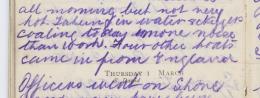 all morning but not very
hot. Taking in water & stores
coaling today & more noise
than work. Four other boats
came in from England
THURSDAY 1 MARCH
Officers went on Shore